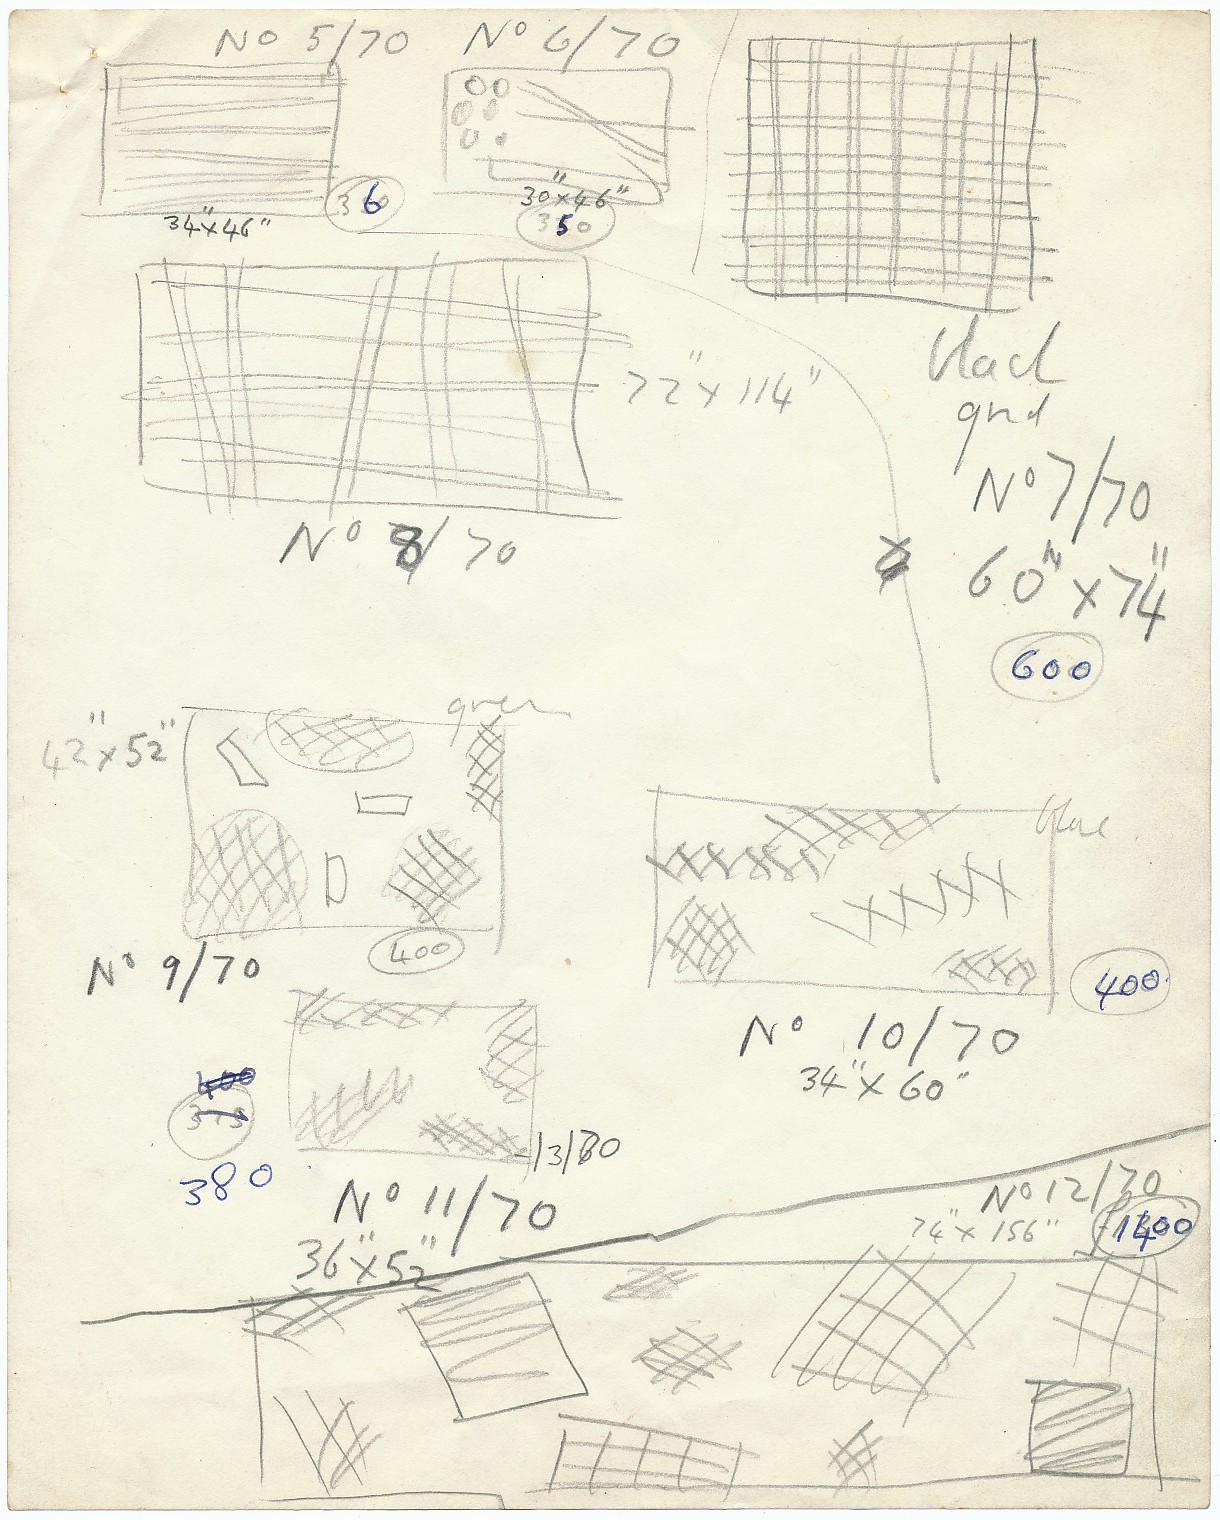 Nº 5/70
Nº 6/70
34"x46"
30"x46"
350
72"x114"
Nº 8/70
black
grnd
Nº 7/70
60"x74"
600
green
42"x52"
400
Nº 9/70
blue
400
Nº 10/70
34"x60"
400
375
380
13/80
Nº 11/70
36"x52"
Nº 12/70
74"x156"
1400